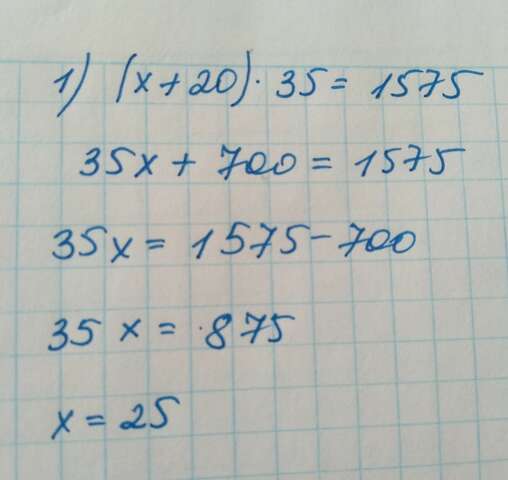 1) (x+20)·35=1575
35x+700=1575
35x=1575-700
35x=875
x=25